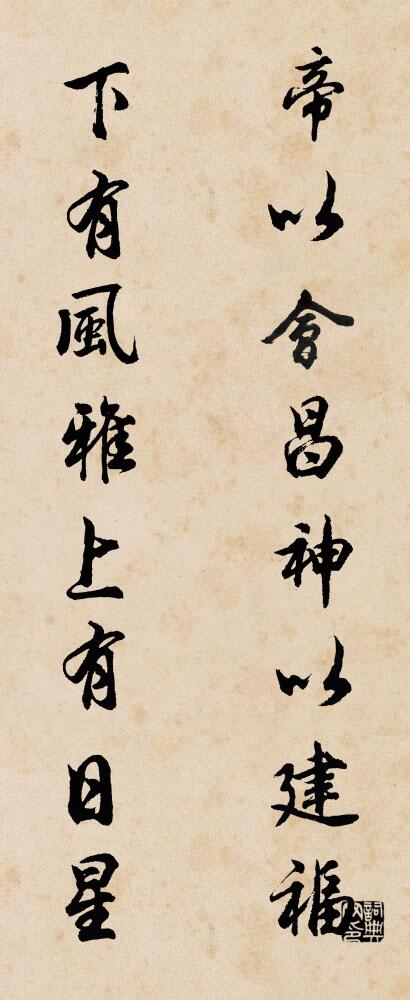 帝以會昌神以建福
下有風雅上有日星